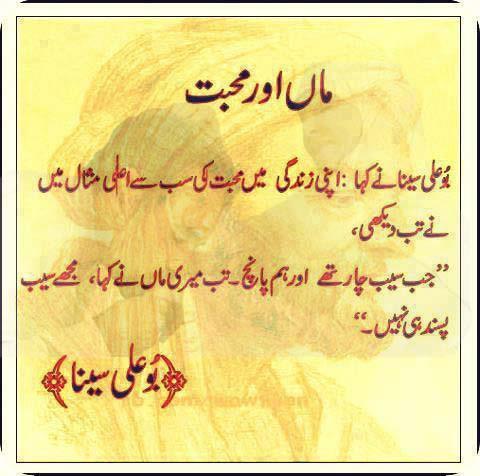 ماں اور محبت
بُو علی سینا نے کہا : اپنی زندگی میں محبت کی سب سے اعلیٰ مثال میں
نے تب دیکھی،
”جب سیب چار تھے اور ہم پانچ۔ تب میری ماں نے کہا، مجھے سیب
پسند ہی نہیں۔“
﴿بُو علی سینا﴾